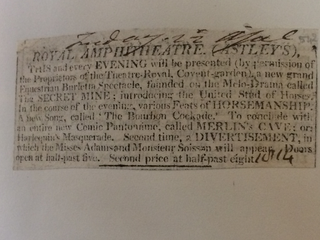 Friday 15 April
ROYAL AMPHITHEATRE, (ASTLEY'S),
THIS and every EVENING will be presented (by permission of
the Proprietors of the Theatre-Royal, Covent-garden), a new grand
Equestrian Burletta Spectacle, founded on the Melo-Drama called
The SECRET MINE; introducing the United Stud of Horses.
In the course of the evening, various Feats of HORSEMANSHIP.
A new Song, called 'The Bourbon Cockade.' To conclude with
an entire new Comic Pantomime, called MERLIN'S CAVE; or,
Harlequin's Masquerade. Second time, a DIVERTISEMENT, in
which the Misses Adams and Monsieur Soissan will appear. Doors
open at half-past five. Second price at half-past eight 1814